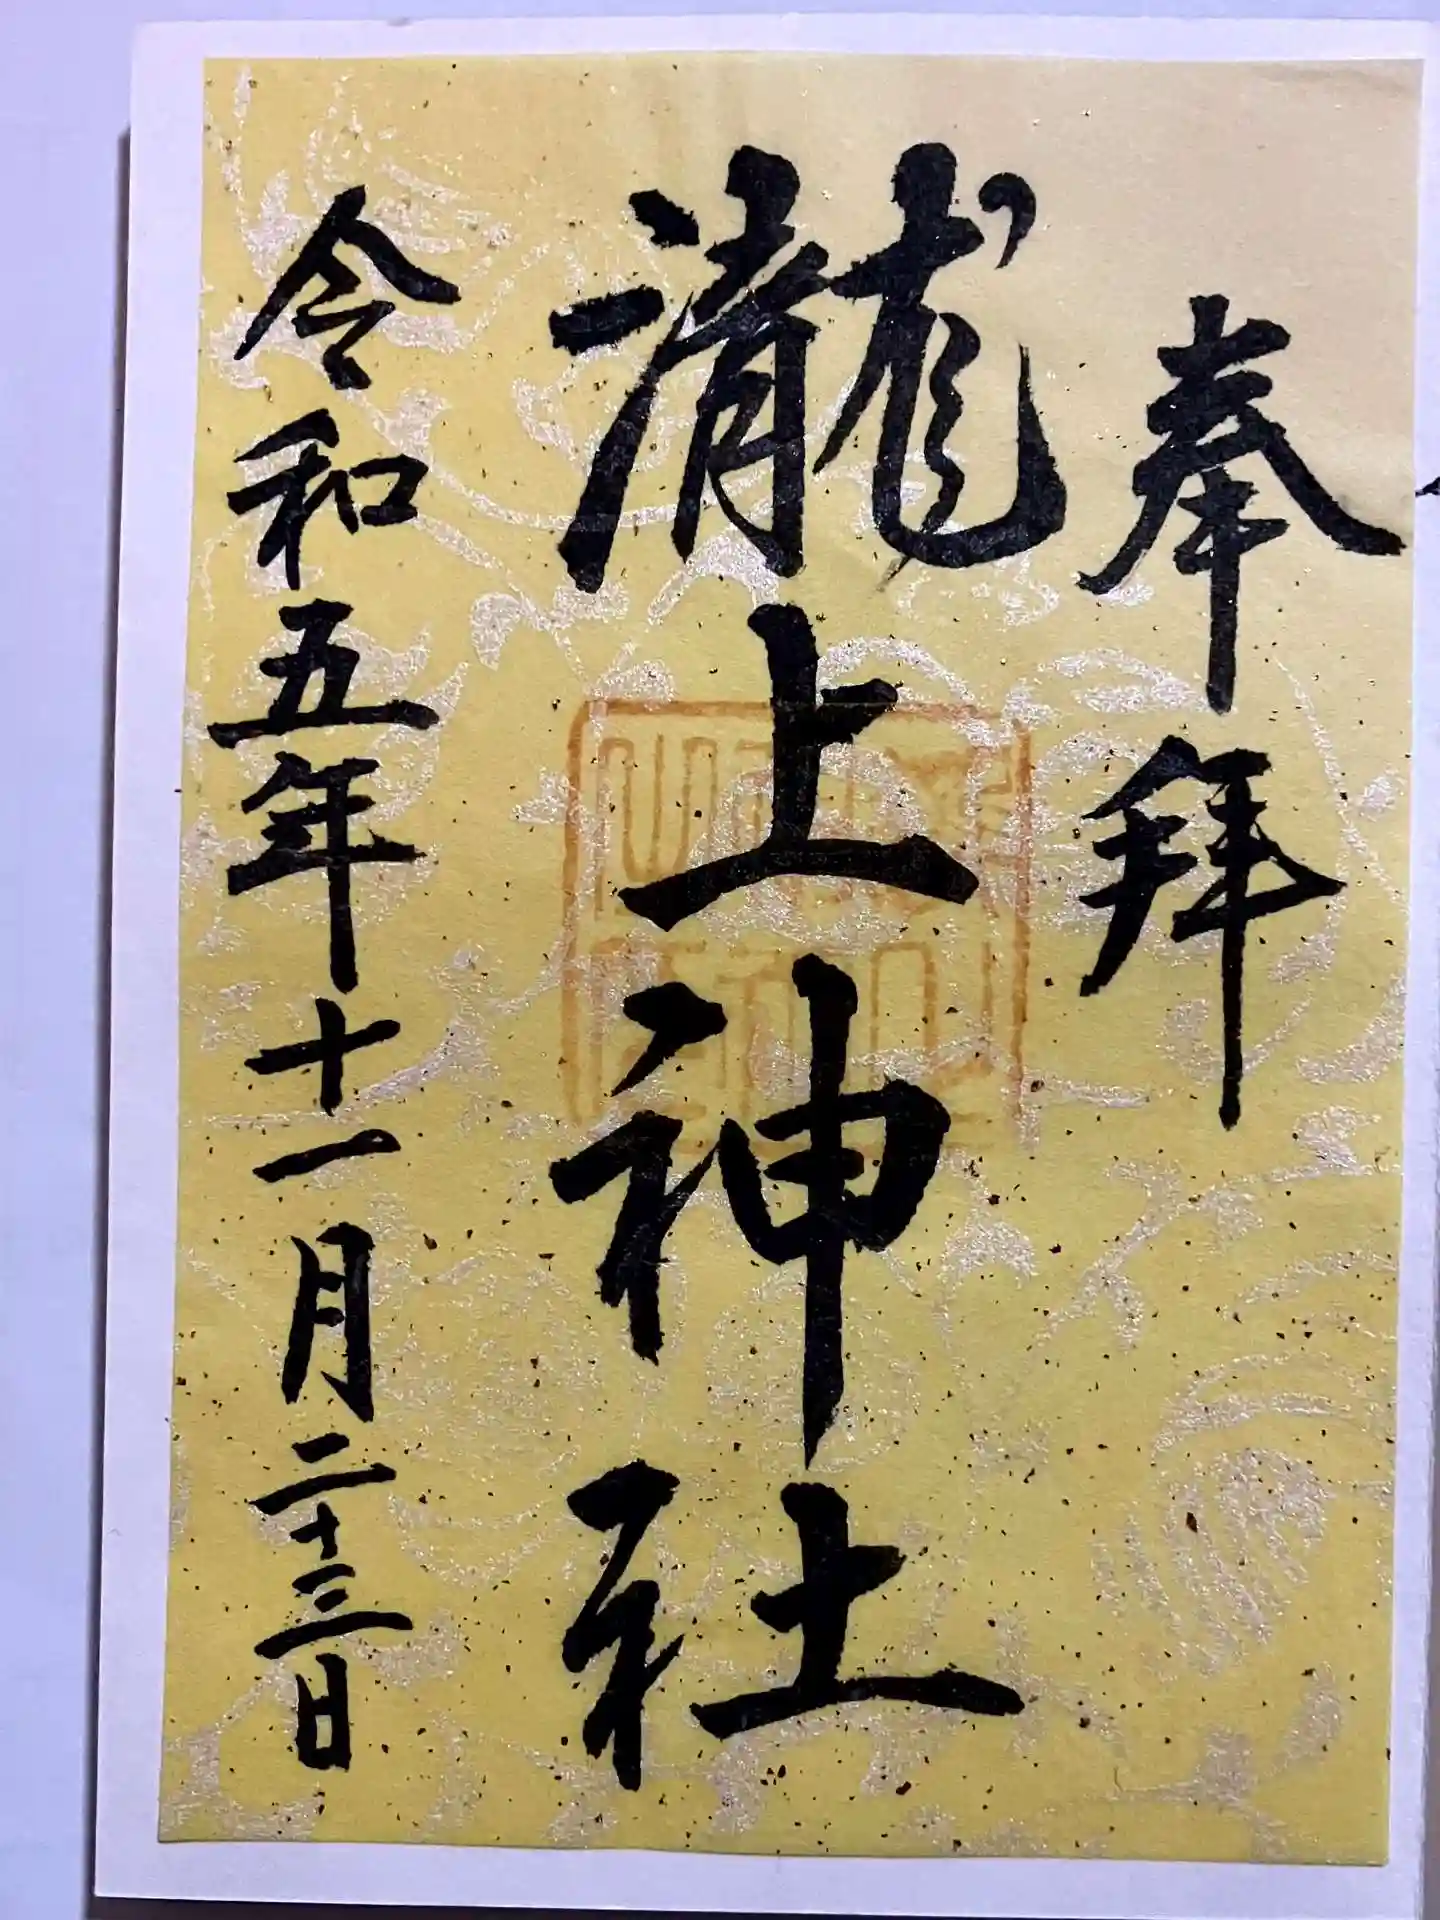 奉拜
瀧上神社
令和五年十一月二十三日